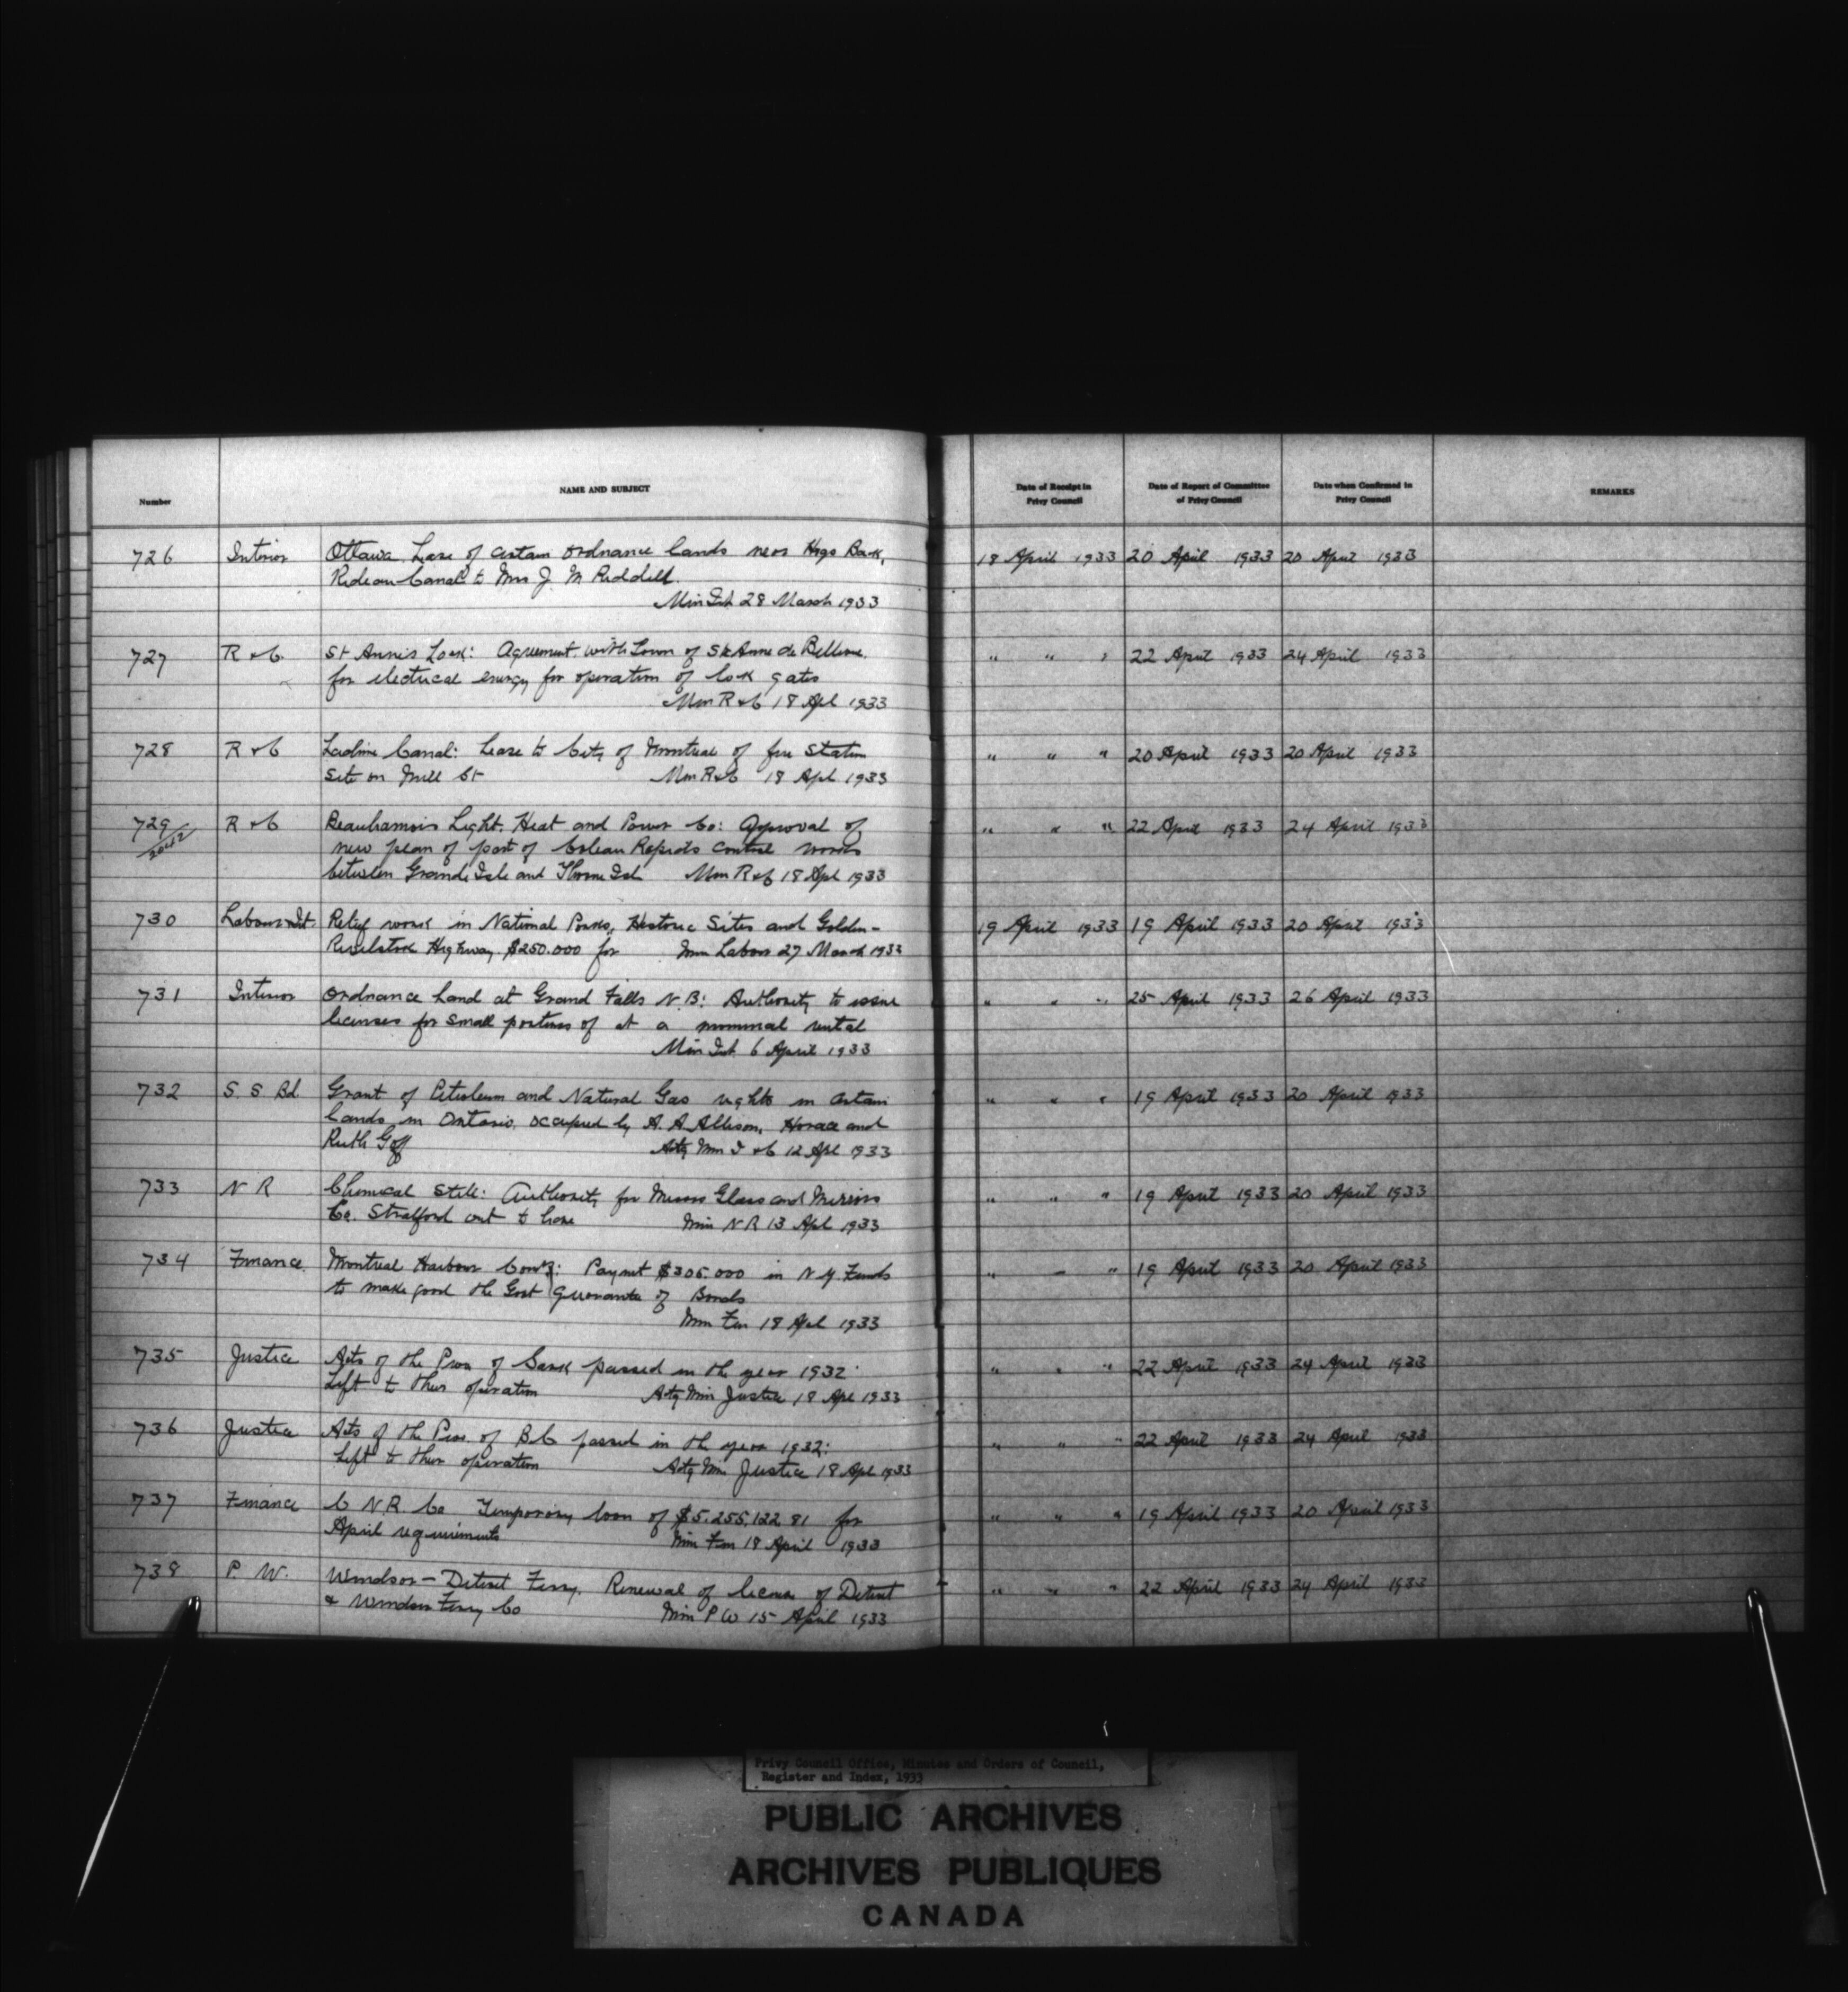 Number
NAME AND SUBJECT
Date of Receipt in Privy Council
Date of Report of Committee of Privy Council
Date when Confirmed in Privy Council
REMARKS
726 Interior Ottawa Lease of certain ordnance lands near Hogs Back, 18 April 1933 20 April 1933 20 April 1933
Rideau Canal to Mrs J. M Riddell.
Min Int 28 March 1933
727 R & C. St Anne's Lock: Agreement with Town of Ste Anne de Bellevue " " " 22 April 1933 24 April 1933
for electrical energy for operation of lock gates
Min R & C 18 Apl 1933
728 R & C Lachine Canal: Lease to City of Montreal of fire station " " " 20 April 1933 20 April 1933
site on Mill St Min R & C 18 Apl 1933
729 R & C Beauharnois Light, Heat and Power Co: Approval of " " " 22 April 1933 24 April 1933
new plan of part of Coteau Rapids control works
between Grande Isle and Thorne Isl Min R & C 18 Apl 1933
730 Labour & Int. Relief work in National Parks, Historic Sites and Golden- 19 April 1933 19 April 1933 20 April 1933
Revelstoke Highway. $250.000 for Min Labour 27 March 1933
731 Interior Ordnance Land at Grand Falls N.B: Authority to issue " " " 25 April 1933 26 April 1933
licenses for small portions of at a nominal rental
Min Int 6 April 1933
732 S. S Bd Grant of Petroleum and Natural Gas rights in certain " " " 19 April 1933 20 April 1933
lands in Ontario occupied by A. A Allison, Horace and
Ruth Goff Actg Min I & C 12 Apl 1933
733 N R Chemical Still: Authority for Messrs Glass and Mirrors " " " 19 April 1933 20 April 1933
Co. Stratford ont to have Min N R 13 Apl 1933
734 Finance. Montreal Harbour Comrs: Paymt $305.000 in N Y Funds " " " 19 April 1933 20 April 1933
to make good the Govt guarantee of Bonds
Min Fin 18 Apl 1933
735 Justice Acts of the Prov of Sask passed in the year 1932 " " " 22 April 1933 24 April 1933
Left to their operation Actg Min Justice 18 Apl 1933
736 Justice Acts of the Prov. of B.C passed in the year 1932: " " " 22 April 1933 24 April 1933
Left to their operation Actg Min Justice 18 Apl 1933
737 Finance C N.R. Co Temporary loan of $5.255,122 81 for " " " 19 April 1933 20 April 1933
April requirements Min Fin 18 April 1933
738 P. W. Windsor - Detroit Ferry. Renewal of license of Detroit " " " 22 April 1933 24 April 1933
& Windsor Ferry Co Min P W 15 April 1933
Privy Council Office, Minutes and Orders of Council,
Register and Index, 1933
PUBLIC ARCHIVES
ARCHIVES PUBLIQUES
CANADA